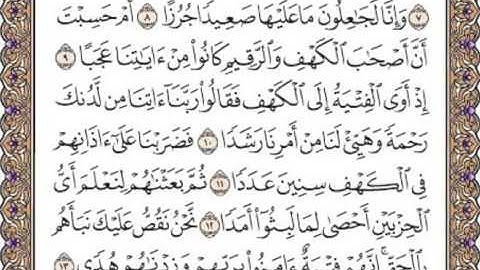 ٧ وَإِنَّا لَجَٰعِلُونَ مَا عَلَيْهَا صَعِيدًا جُرُزًا ٨ أَمْ حَسِبْتَ
أَنَّ أَصْحَٰبَ ٱلْكَهْفِ وَٱلرَّقِيمِ كَانُوا۟ مِنْ ءَايَٰتِنَا عَجَبًا ٩
إِذْ أَوَى ٱلْفِتْيَةُ إِلَى ٱلْكَهْفِ فَقَالُوا۟ رَبَّنَآ ءَاتِنَا مِن لَّدُنكَ
رَحْمَةً وَهَيِّئْ لَنَا مِنْ أَمْرِنَا رَشَدًا ١٠ فَضَرَبْنَا عَلَىٰٓ ءَاذَانِهِمْ
فِى ٱلْكَهْفِ سِنِينَ عَدَدًا ١١ ثُمَّ بَعَثْنَٰهُمْ لِنَعْلَمَ أَىُّ
ٱلْحِزْبَيْنِ أَحْصَىٰ لِمَا لَبِثُوٓا۟ أَمَدًا ١٢ نَّحْنُ نَقُصُّ عَلَيْكَ نَبَأَهُم
بِٱلْحَقِّ ۚ إِنَّهُمْ فِتْيَةٌ ءَامَنُوا۟ بِرَبِّهِمْ وَزِدْنَٰهُمْ هُدًى ١٣